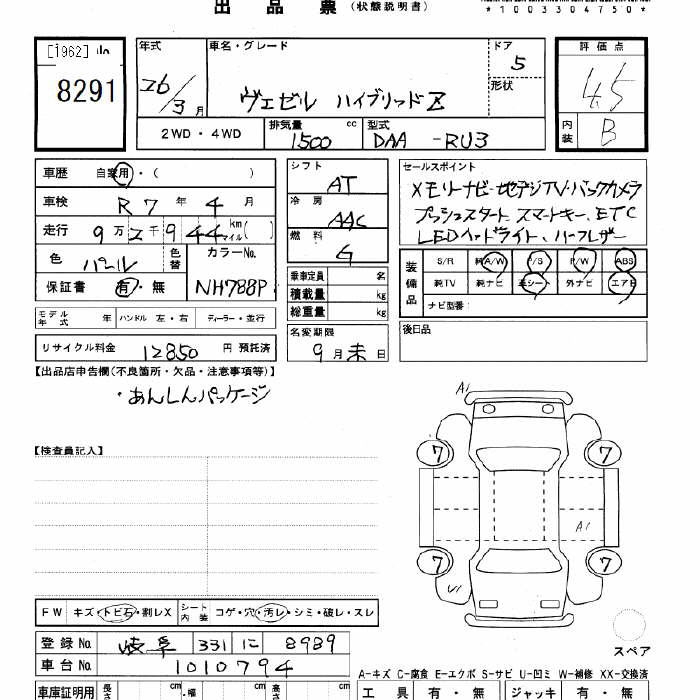 出 品 票 (状態説明書)
*1003304750*
[1962]
8291
年式
26/3月
車名・グレード
ヴェゼル ハイブリッドZ
ドア
5
形状
評価点
4.5
内装 B
2WD・4WD
排気量 1500 cc
型式 DAA -RU3
車歴 自家用・( )
車検 R7年4月
走行 9万2千944 km マイル( )
色 パール
色替
カラーNo. NH788P
保証書 有・無
シフト
AT
冷房
AAC
燃料
G
乗車定員 名
積載量 kg
総重量 kg
セールスポイント
メモリーナビ・地デジTV・バックカメラ
プッシュスタート、スマートキー、ETC
LEDヘッドライト、ハーフレザー
装備品
S/R 純A/W P/S P/W ABS
純TV 純ナビ 革シート 外ナビ エアB
ナビ型番:
モデル年式 年 ハンドル 左・右 ディーラー・並行
名変期限
9月末日
後日品
リサイクル料金 12850 円 預託済
【出品店申告欄(不良箇所・欠品・注意事項等)】
・あんしんパッケージ
【検査員記入】
A1
7
7
A1
7
7
U1
スペア
FW キズ・トビ石・割レX
シート内装 コゲ・穴・汚レ・シミ・破レ・スレ
登録No. 岐阜 331 に 8989
車台No. 1010794
A-キズ C-腐食 E-エクボ S-サビ U-凹ミ W-補修 XX-交換済
車庫証明用 長さ cm ・幅 cm 高さ cm
工具 有・無 ジャッキ 有・無